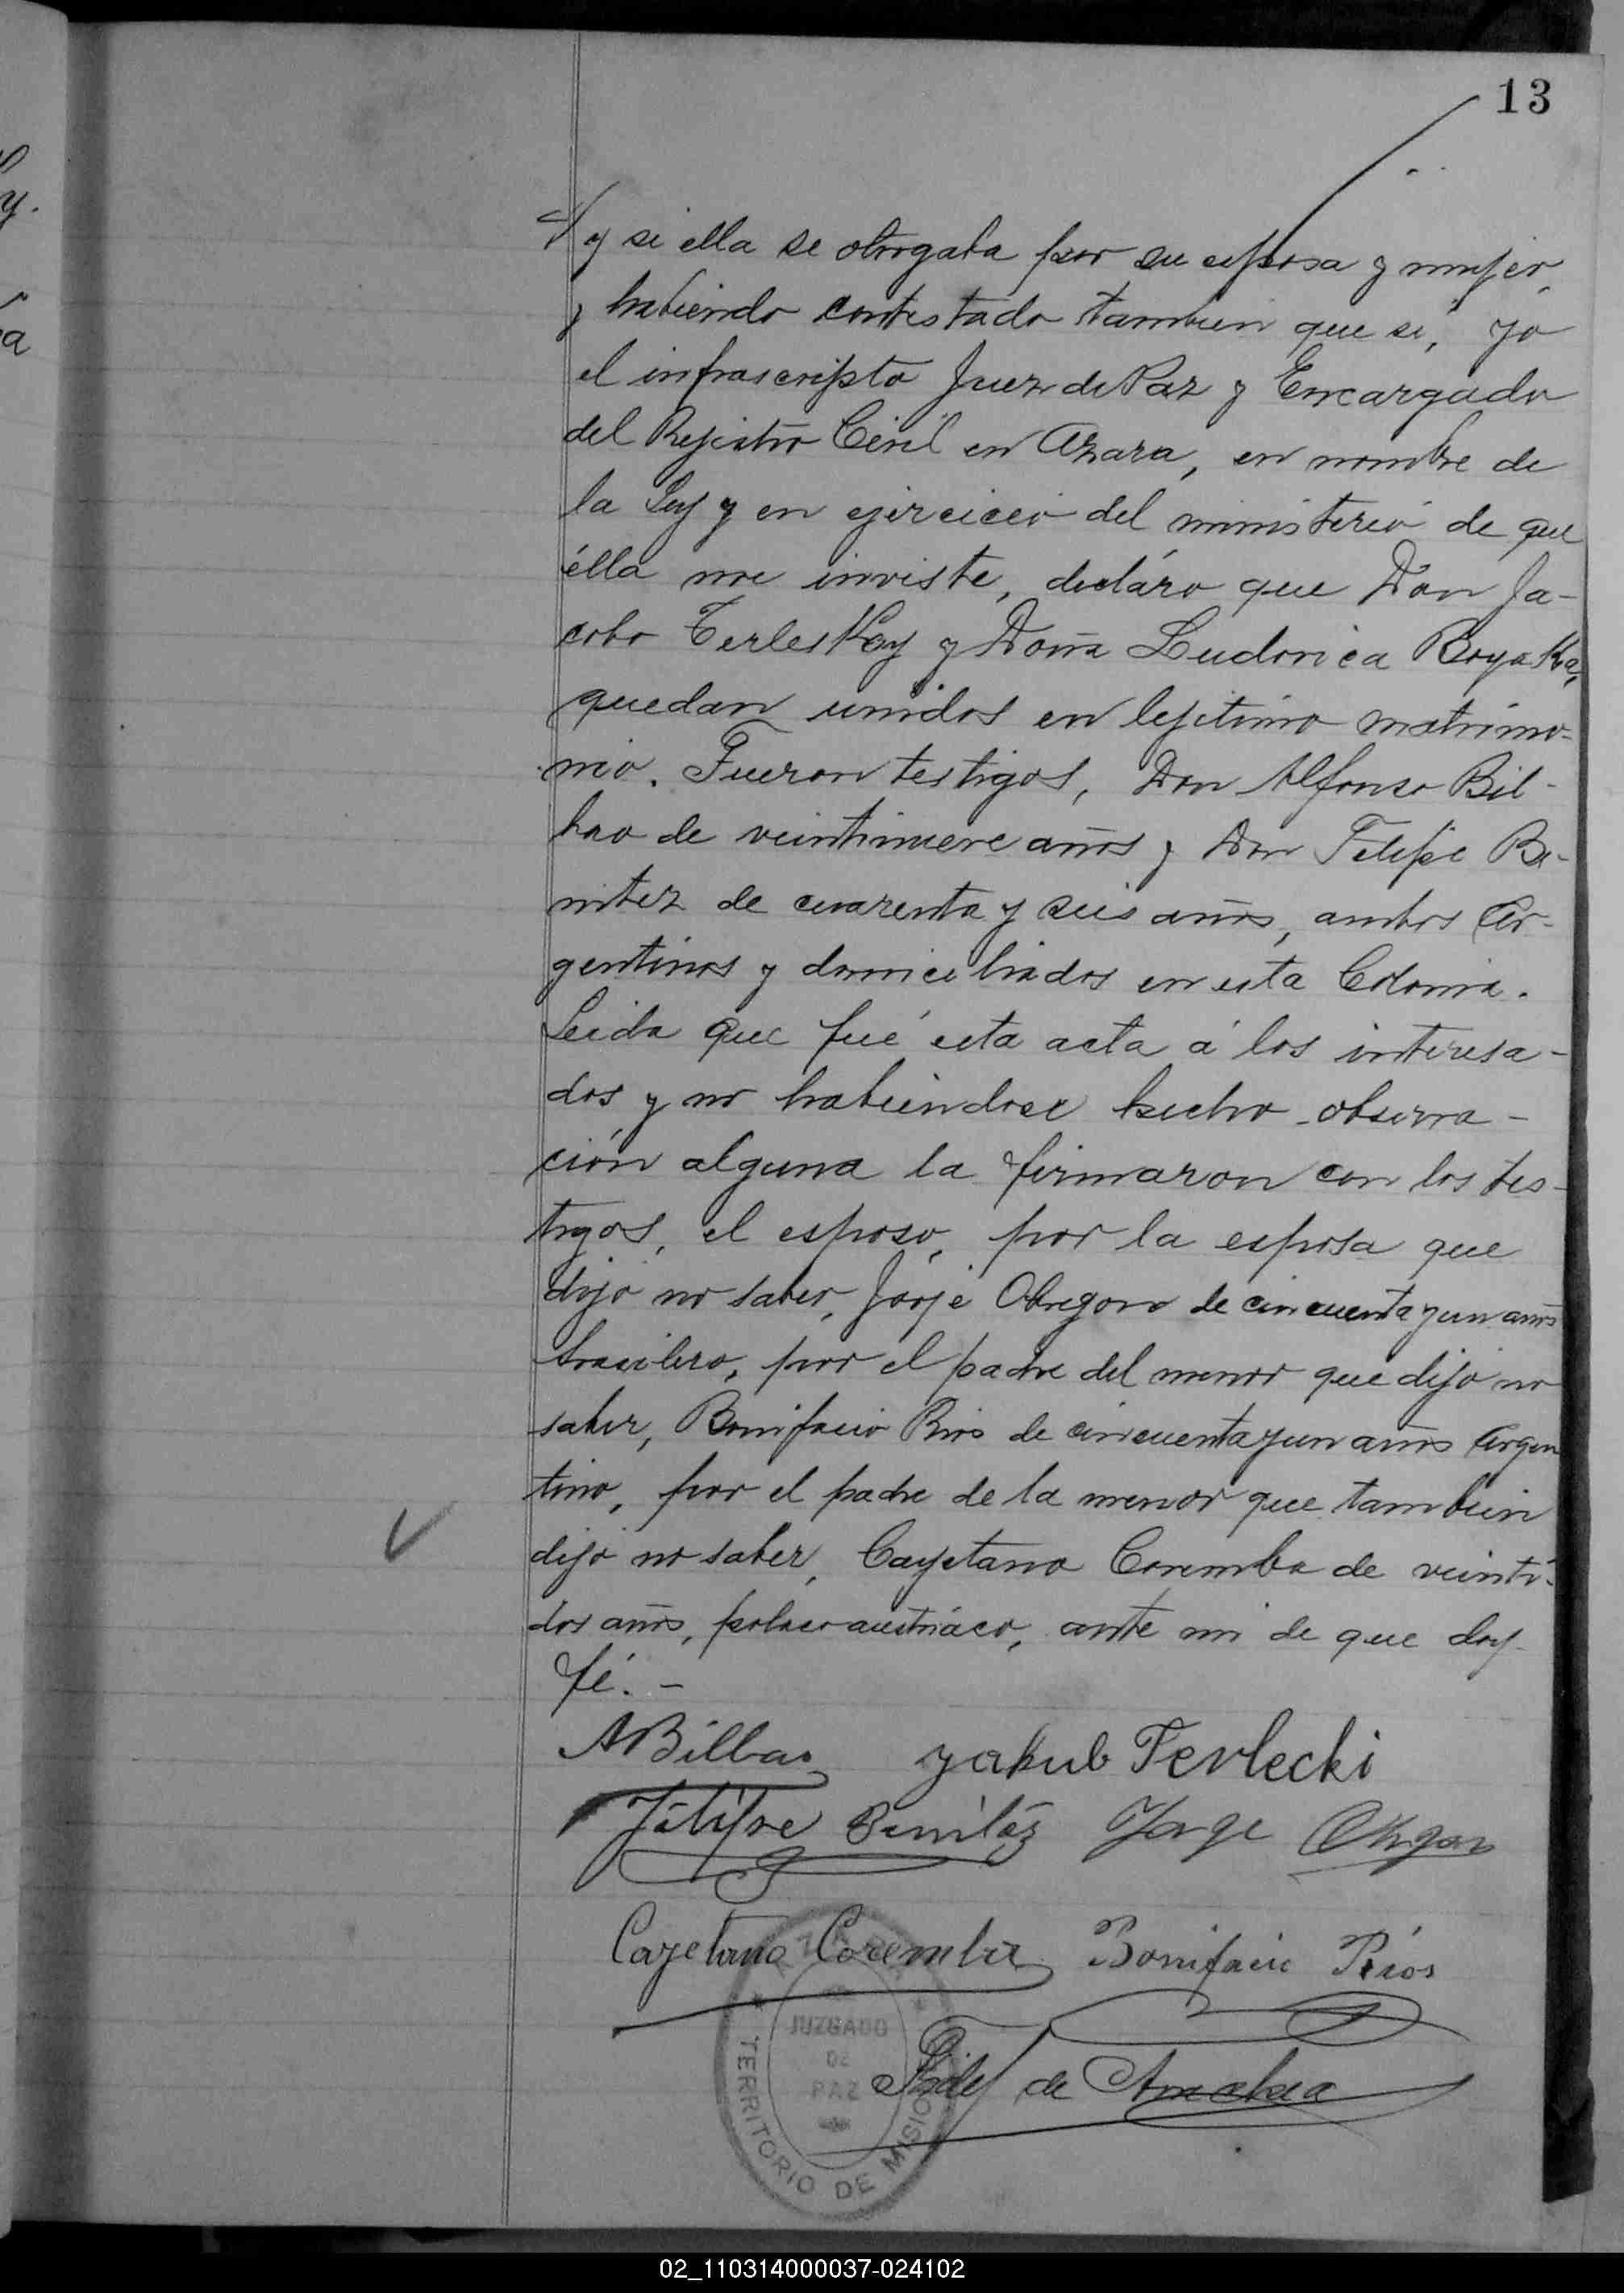 13
y si ella se otorgaba por su esposa y mujer,
y habiendo contestado tambien que si, yo
el infrascripto Juez de Paz y Encargado
del Rejistro Civil en Azara, en nombre de
la Ley y en ejercicio del ministerio de que
élla me inviste, decláro que Don Ja-
cobo Terleskay y Doña Ludovica Boyaka,
quedan unidos en lejitimo matrimo-
nio. Fueron testigos, Don Alfonso Bil-
bao de veintinueve años y Don Felipe Be-
nitez de cuarenta y seis años, ambos Ar-
gentinos y domiciliados en esta Colonia.
Leida que fué esta acta á los interesa-
dos y no habiendose hecho observa-
ción alguna la firmaron con los tes-
tigos, el esposo, por la esposa que
dijo no saber, Jorje Obregon de cincuenta y un años
brasilero, por el padre del menor que dijo no
saber, Bonifacio Rios de cincuenta y un años Argen
tino, por el padre de la menor que tambien
dijo no saber, Cayetano Coremba de veinti-
dos años, polaco austriáco, ante mi de que doy
fé. -
ABilbao yakub Terlecki
Felipe Benitez Jorge Obregon
Cayetano Coremba Bonifacio Rios
Fidel de
AZARA
JUZGADO
DE
PAZ
TERRITORIO DE MISIONES
02_110314000037-024102